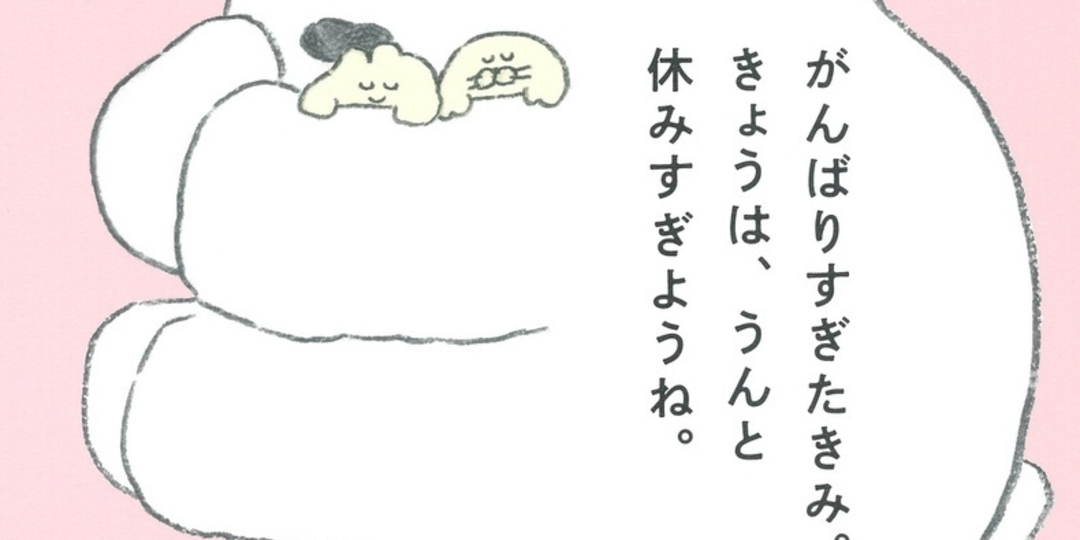 がんばりすぎたきみ。
きょうは、うんと
休みすぎようね。